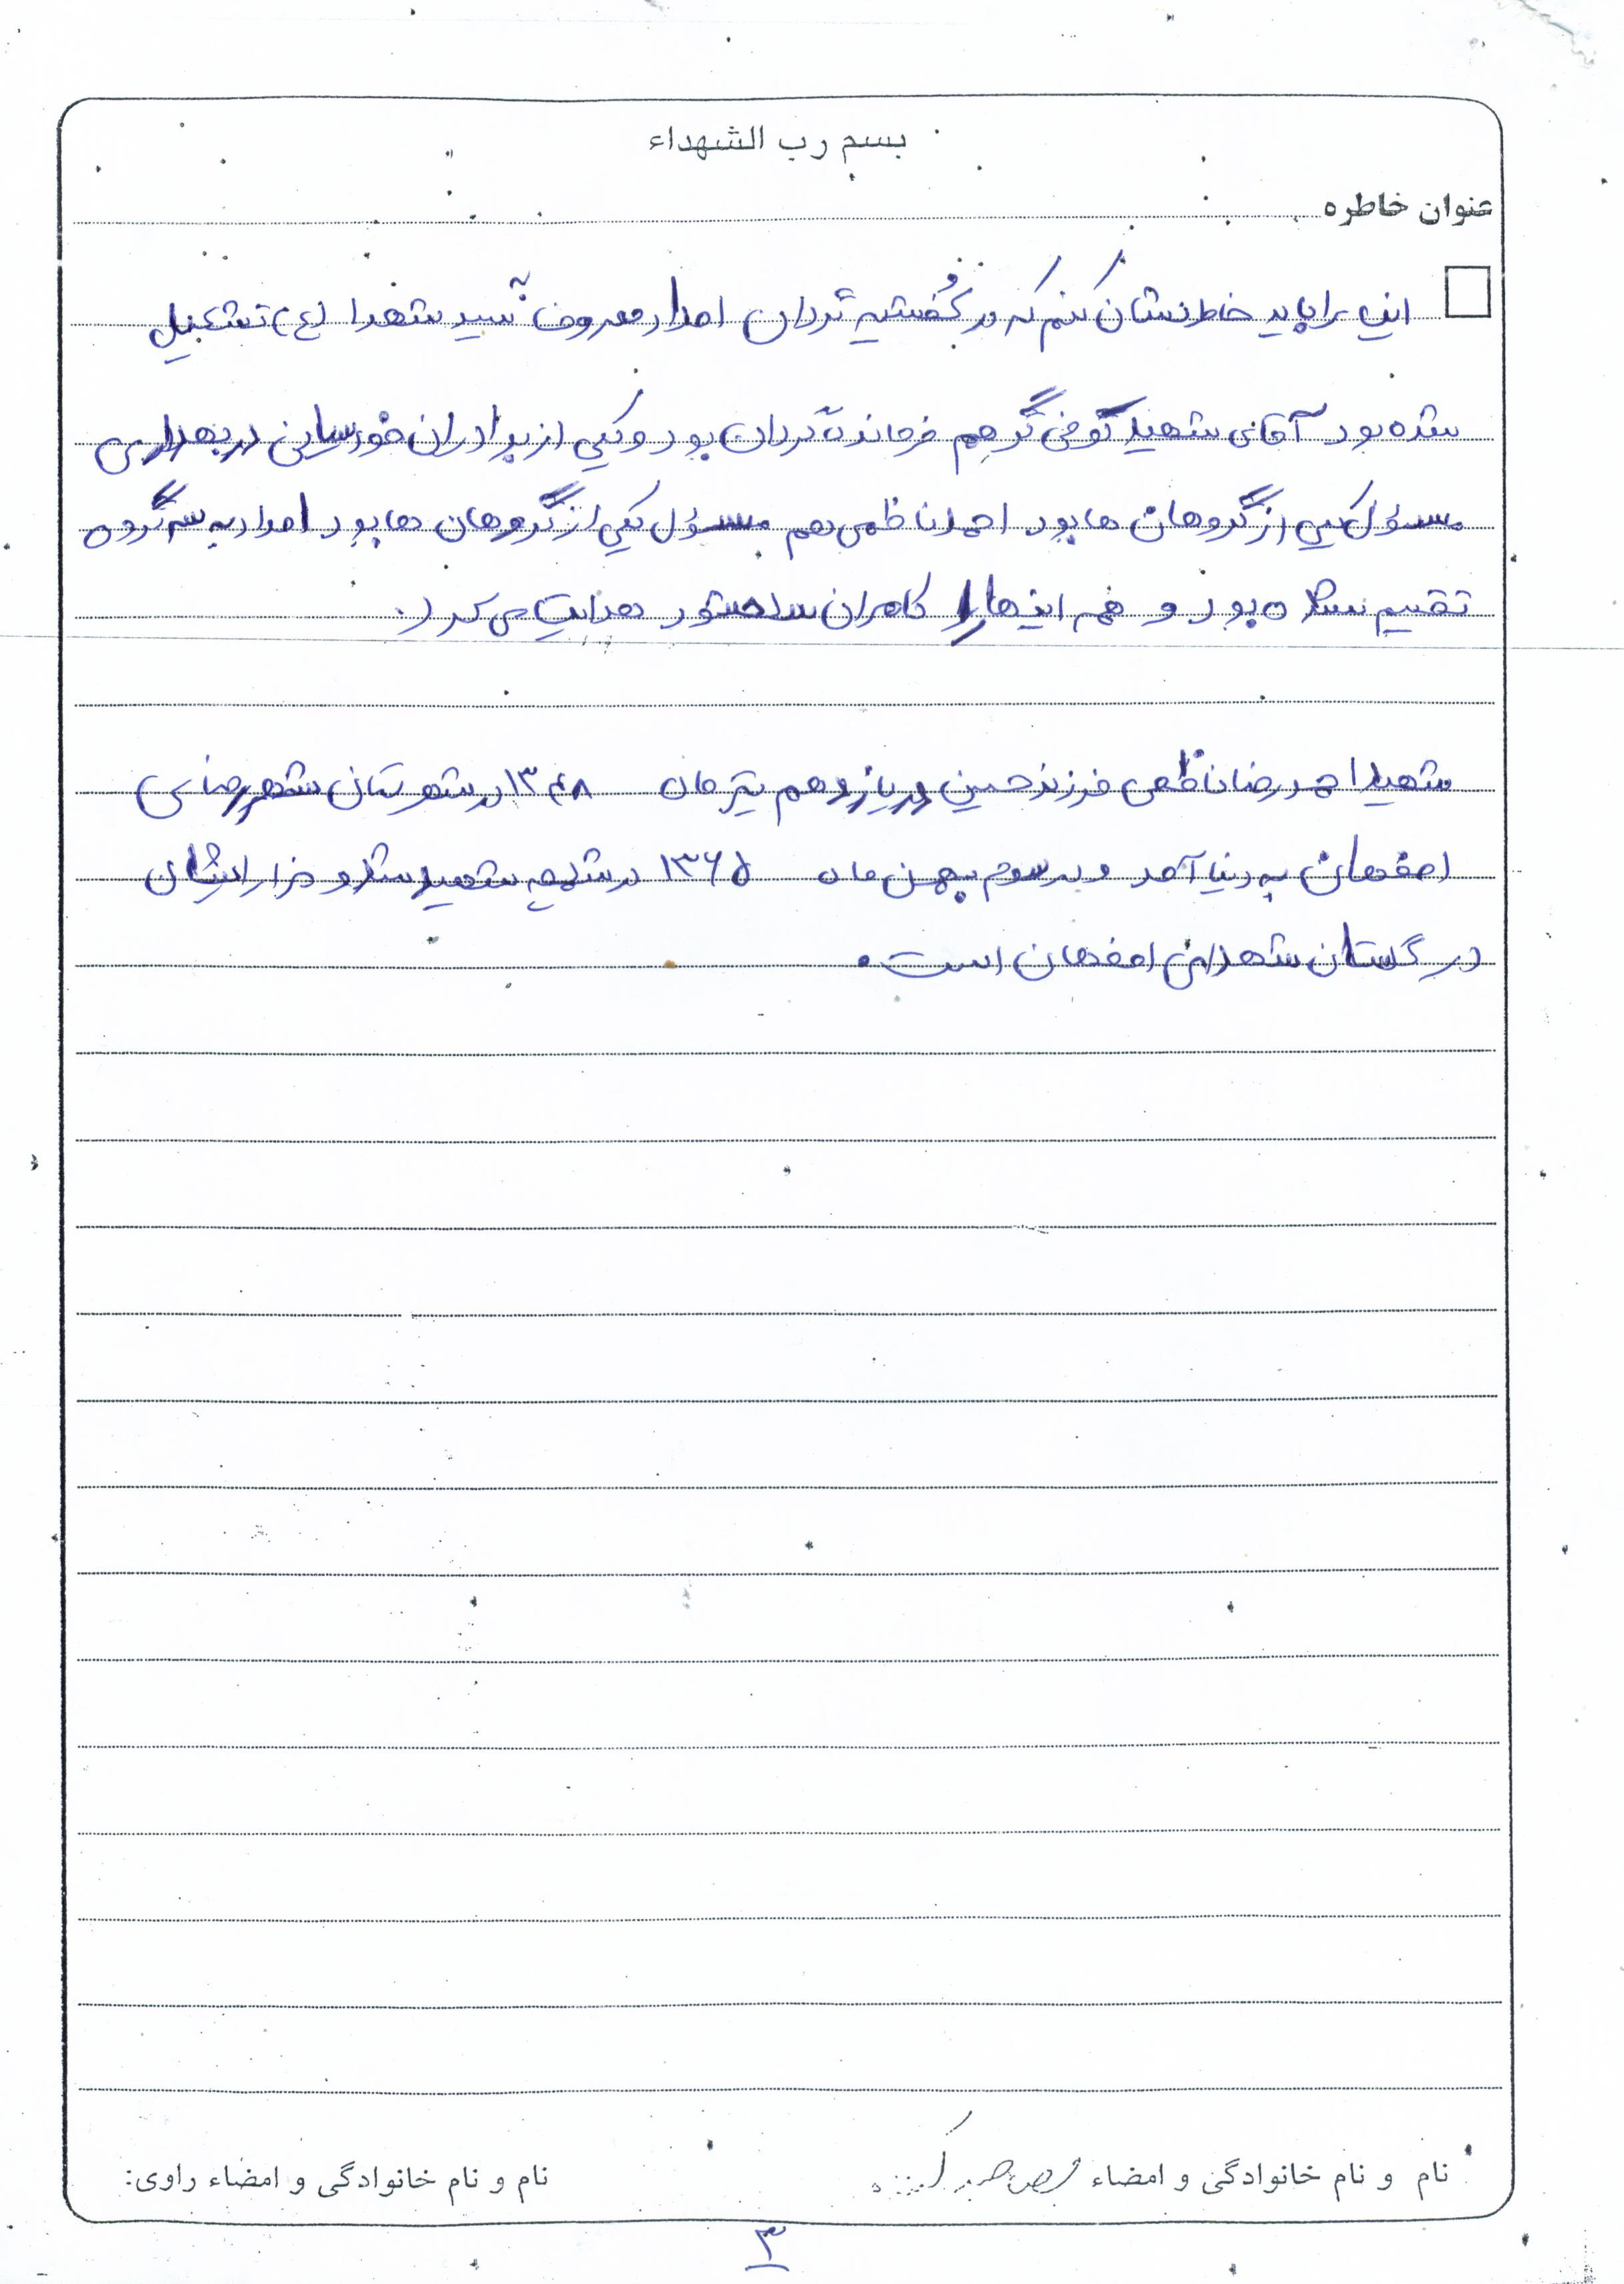 بسم رب الشهداء
عنوان خاطره
این را باید خاطرنشان کنم که در گذشته گردان امداد معروف سید شهدا (ع) تشکیل
شده بود آقای شهید هم فرمانده گردان بود و یکی از برادران خوزستانی در بهداری
مسئول یکی از گروهان ها بود احمدناظمی هم مسئول یکی از گروهان ها بود امداد به سه گروه
تقسیم شده بود و همه اینها را کامران سلحشور هدایت می کرد.
شهید احمدرضا ناظمی فرزند حسین در یازدهم تیرماه ۱۳۴۸ در شهرستان شهررضای
اصفهان به دنیا آمد و در سوم بهمن ماه ۱۳۶۵ در شلمچه شهید شد و مزار ایشان
در گلستان شهدای اصفهان است.
نام و نام خانوادگی و امضاء
نام و نام خانوادگی و امضاء راوی:
۳